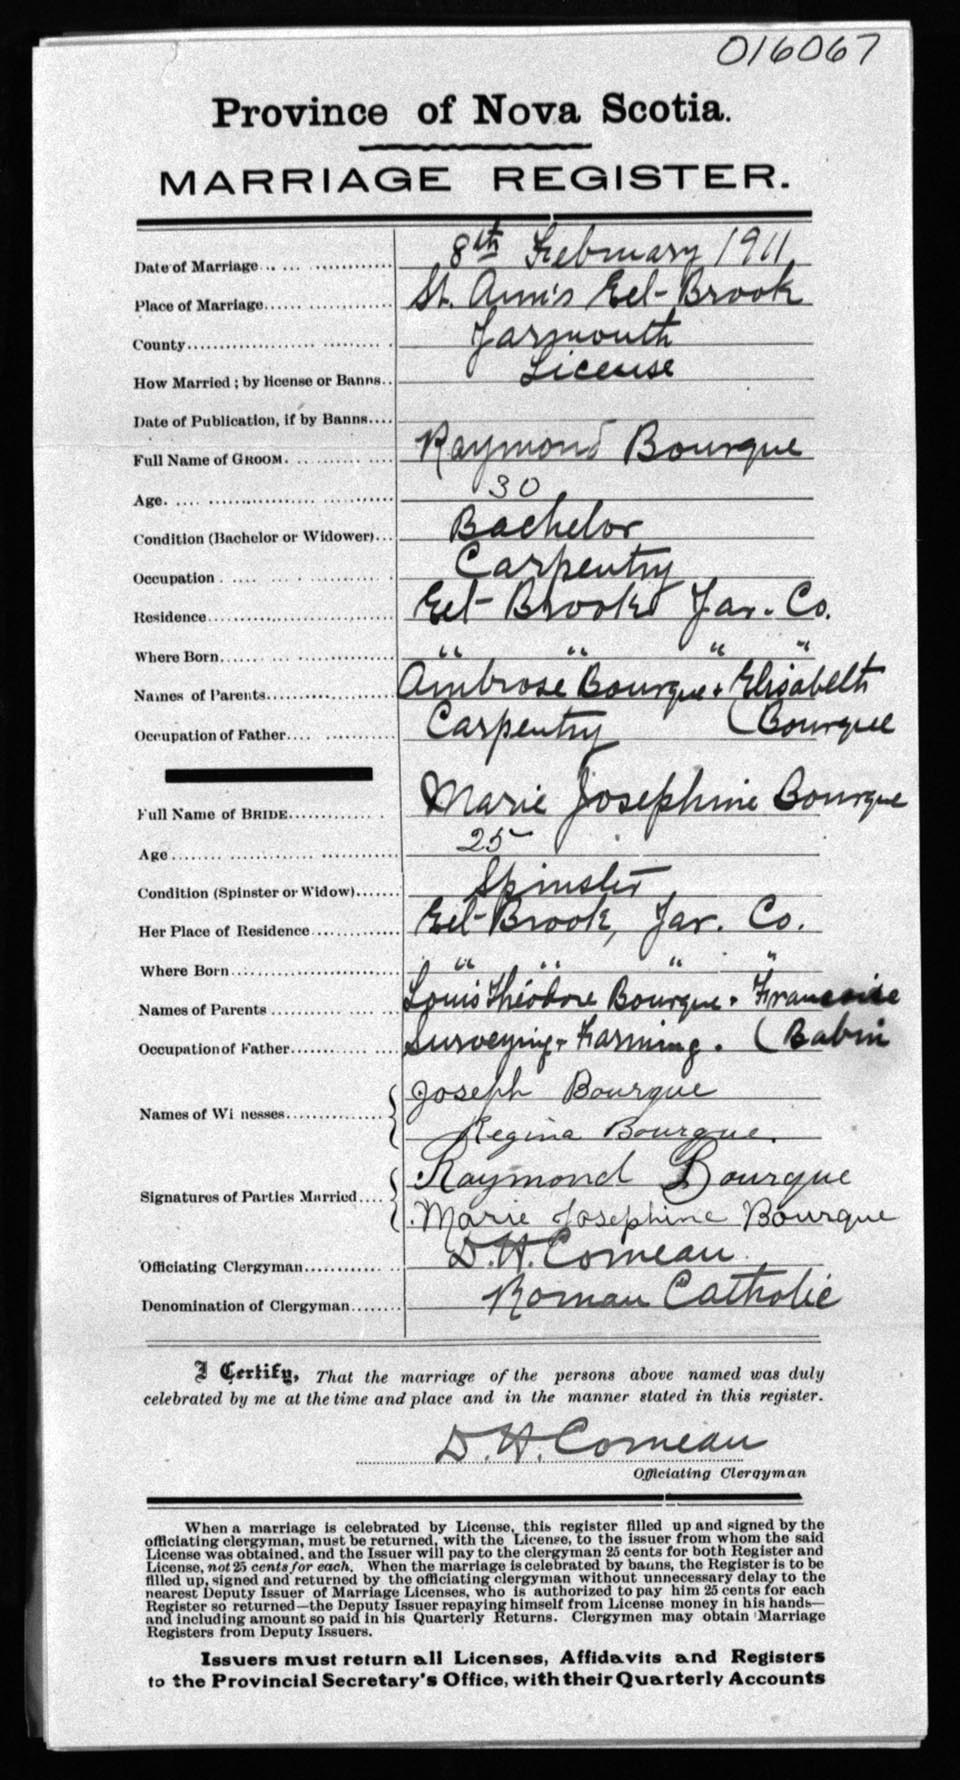 016067
Province of Nova Scotia.
MARRIAGE REGISTER.
Date of Marriage 8th February 1911
Place of Marriage St. Ann's Eel-Brook
County Yarmouth
How Married; by license or Banns License
Date of Publication, if by Banns
Full Name of GROOM. Raymond Bourque
Age. 30
Condition (Bachelor or Widower) Bachelor
Occupation Carpentry
Residence Eel-Brook Yar. Co.
Where Born " " " "
Names of Parents Ambrose Bourque + Elisabeth
Occupation of Father Carpentry (Bourque
Full Name of BRIDE Marie Josephine Bourque
Age 25
Condition (Spinster or Widow) Spinster
Her Place of Residence Eel-Brook, Yar. Co.
Where Born " " " "
Names of Parents Louis Théodore Bourque + Francoise
Occupation of Father Surveying + Farming. (Babin
Joseph Bourque
Names of Wi nesses
Regina Bourque.
Raymond Bourque
Signatures of Parties Married
Marie Josephine Bourque
Officiating Clergyman D.H. Comeau
Denomination of Clergyman Roman Catholic
I Certify, That the marriage of the persons above named was duly
celebrated by me at the time and place and in the manner stated in this register.
D. H. Comeau
Officiating Clergyman
When a marriage is celebrated by License, this register filled up and signed by the
officiating clergyman, must be returned, with the License, to the issuer from whom the said
License was obtained, and the Issuer will pay to the clergyman 25 cents for both Register and
License, not 25 cents for each. When the marriage is celebrated by banns, the Register is to be
filled up, signed and returned by the officiating clergyman without unnecessary delay to the
nearest Deputy Issuer of Marriage Licenses, who is authorized to pay him 25 cents for each
Register so returned—the Deputy Issuer repaying himself from License money in his hands—
and including amount so paid in his Quarterly Returns. Clergymen may obtain Marriage
Registers from Deputy Issuers.
Issuers must return all Licenses, Affidavits and Registers
to the Provincial Secretary's Office, with their Quarterly Accounts